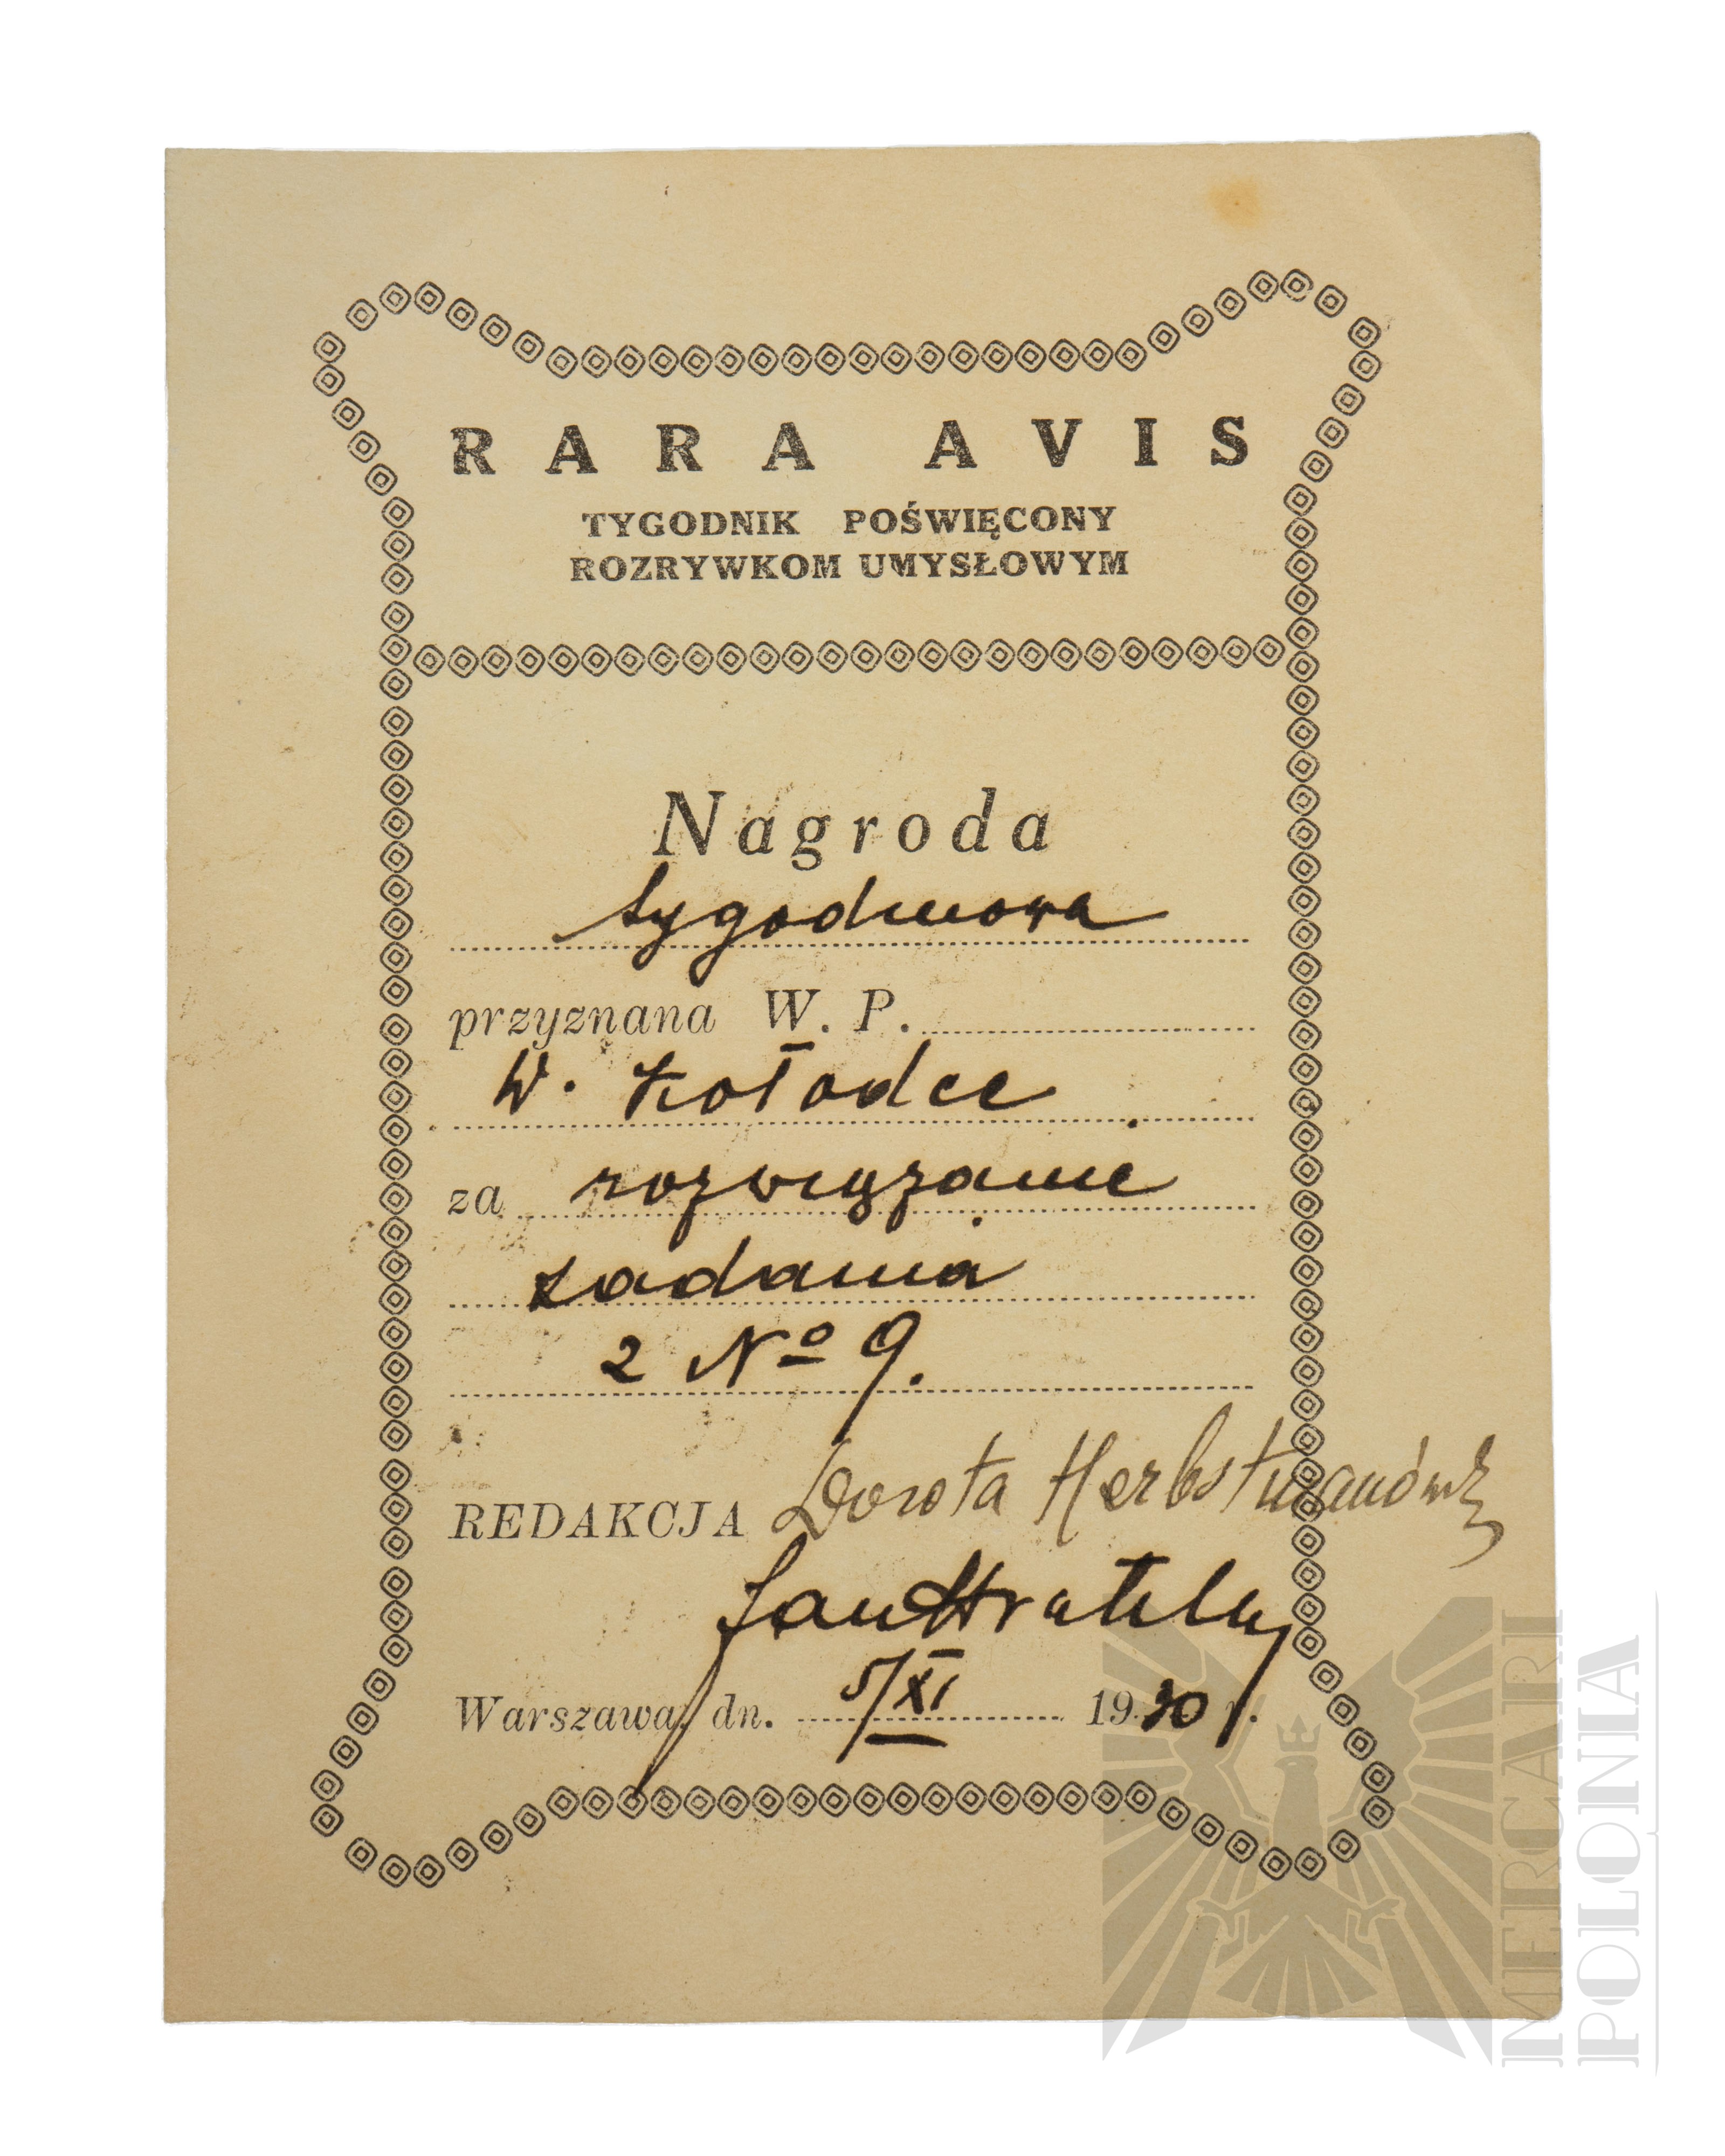 RARA AVIS
TYGODNIK POŚWIĘCONY
ROZRYWKOM UMYSŁOWYM
Nagroda
tygodniowa
przyznana W. P.
W. Kołodce
za rozwiązanie
zadania
2 № 9.
REDAKCJA Dorota
Jan
Warszawa, dn. 5/XI 1930 r.
MERCARI
POLONIA